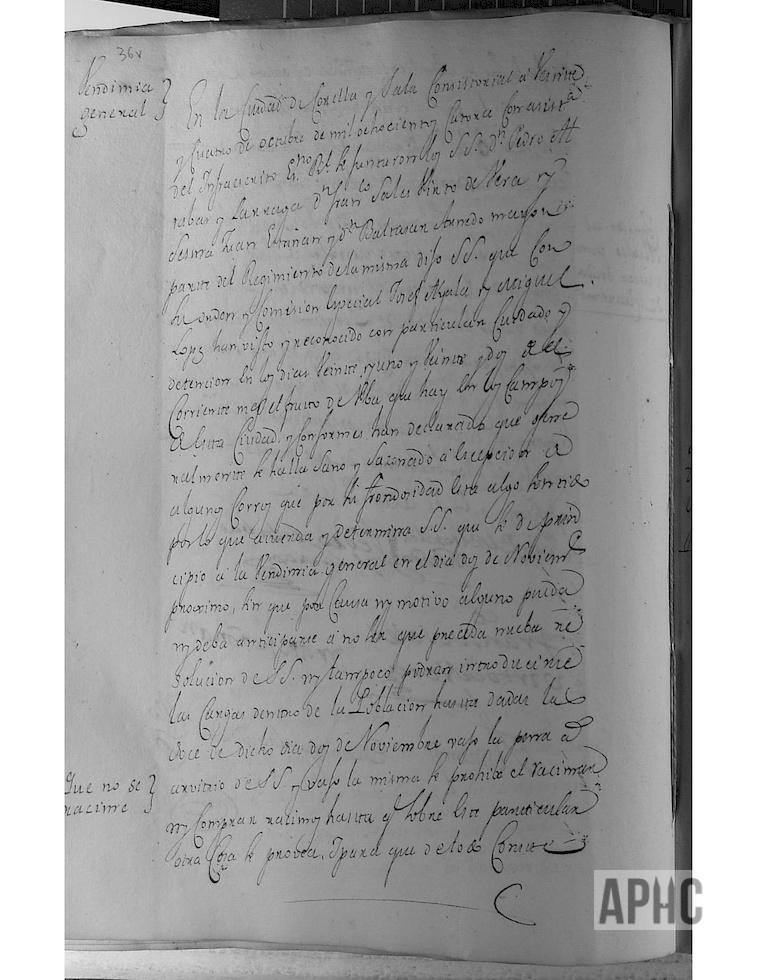 36v
Vendimia
general
En la Ciudad de Corella y Sala Consistorial a Veinte
y Cuatro de octubre de mil ochocientos Catorce Con asista
del Infraescrito Esno Rl. se juntaron los SS. Dn Pedro
y Larraga Dn Franco Sales Pinto de Vera y
Sesma Juan Escriñan y Dn Baltasar Arnedo mayor
parte del Regimiento de la misma dijo SS. que Con
su orden y Comision Especial Josef Ayala y Miguel
Lopez han visto y reconocido con particular Cuidado y
detencion en los dias Veinte y uno y Veinte y dos de el
Corriente mes el fruto de Uba que hay en los Campos
de Esta Ciudad, y Conformes han declarado que
nalmente se halla Sano y Sazonado a Escepcion de
algunos Corros que por su frondosidad Esta algo
por lo que acuerda y determina S.S. que se de prin
cipio a la Vendimia general en el dia dos de Noviemre
proximo, sin que por Causa ny motivo alguno pueda
ny deba anticiparse a no ser que preceda nueba re
solucion de SS. ny tampoco podran introducirse
las Cargas dentro de la Poblacion hasta dadas las
doce de dicho dia dos de Noviembre vajo la pena al
arvitrio de SS y vajo la misma se prohibe el racimar
ny Comprar racimos hasta qe Sobre Este particular
otra Cosa se probea, Ypara que de todo Conste
Que no se
racime
APHC